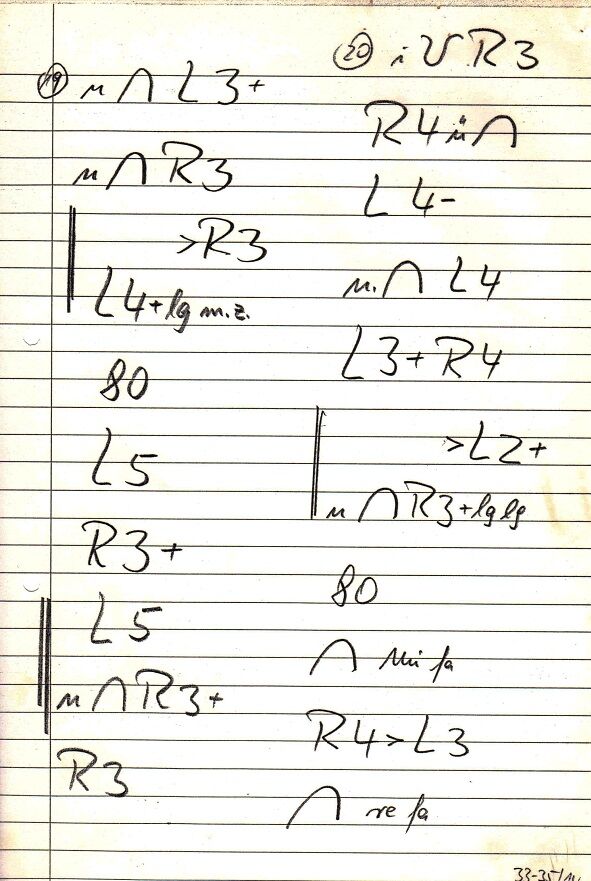 19 u ∩ L3+
u ∩ R3
>R3
L4+lg m.z.
80
L5
R3+
L5
u ∩ R3+
R3
20 i V R3
R4 ü ∩
L4-
u. ∩ L4
L3+R4
>L2+
u ∩ R3+lg lg
80
∩ mi fa
R4>L3
∩ re fa